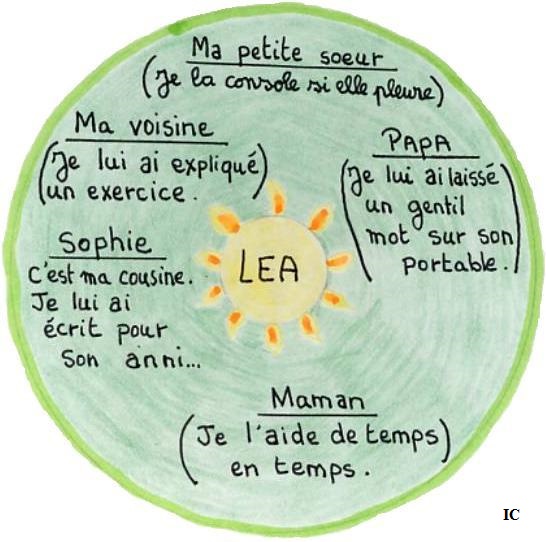 Ma petite soeur
(Je la console si elle pleure)
Ma voisine
(Je lui ai expliqué)
un exercice.
PAPA
(Je lui ai laissé
un gentil
mot sur son
portable.)
Sophie
C'est ma cousine.
Je lui ai
écrit pour
son anni...
LEA
Maman
(Je l'aide de temps)
en temps.
IC